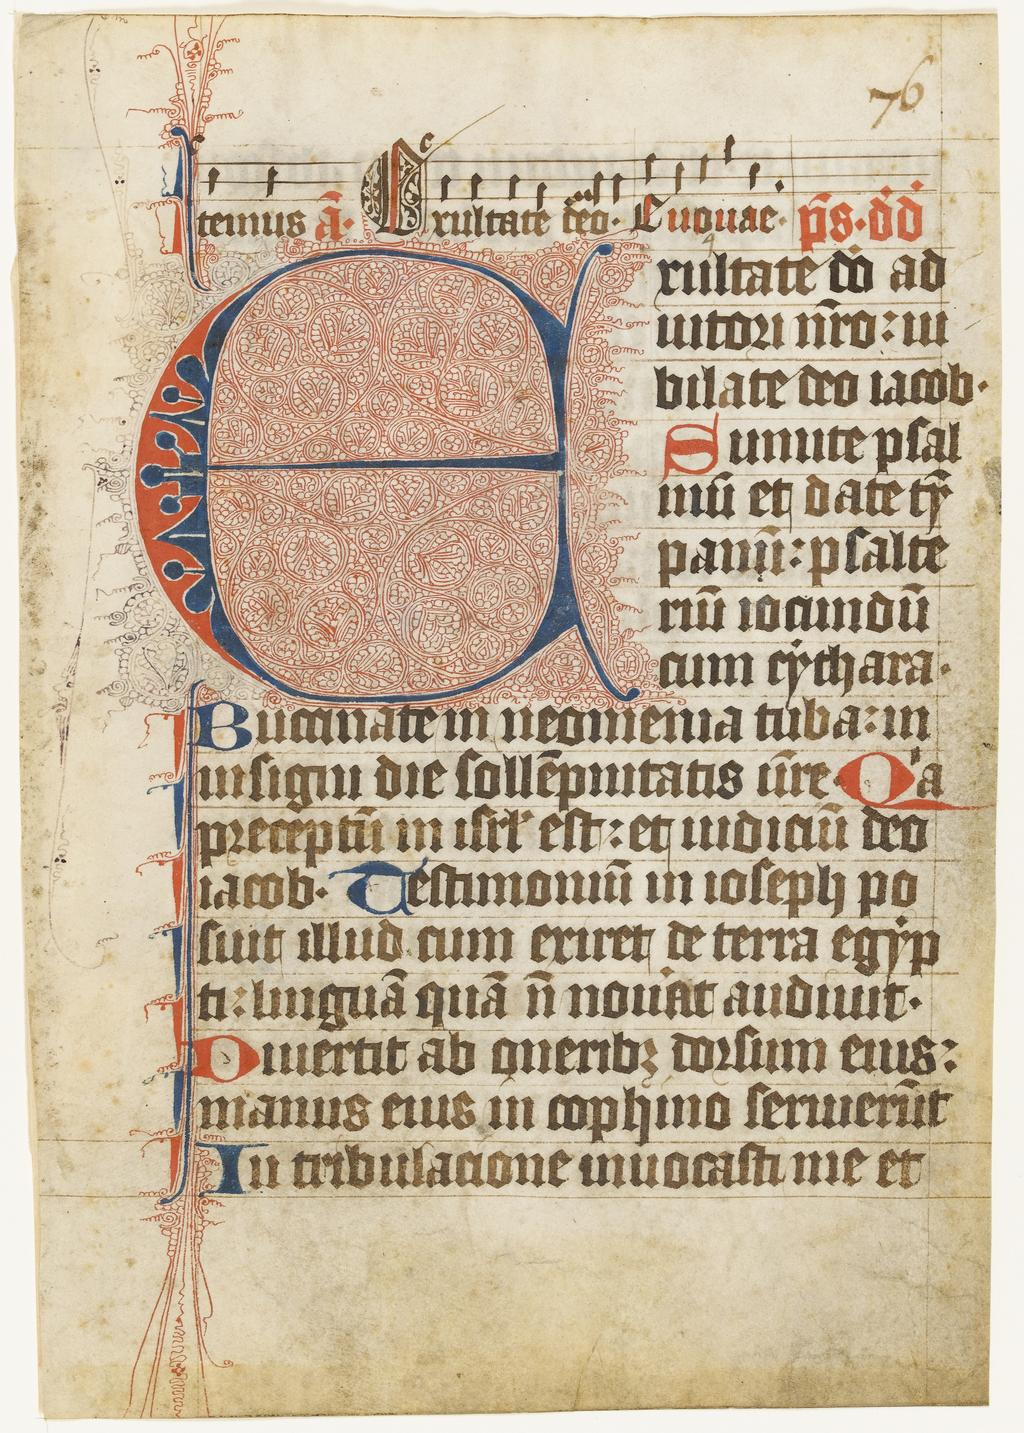 76
temus a̅. Exultate deo. Euouae. p̅s. d̅d̅
Exultate d̅o ad
iutori n̅ro: iu
bilate deo iacob.
Sumite psal
mū et date tȳ
panum̄: psalte
riū iocundū
cum cythara.
Buccinate in neomenia tuba: in
insigni die sollēpnitatis ūre. Qa
preceptū in isrl' est: et iudiciū deo
iacob. Testimoniū in ioseph po
suit illud cum exiret de terra egyp
ti: linguā quā n̄ nouāt audiuit.
Diuertit ab oneribꝫ dorsum eius:
manus eius in cophino seruierūt
In tribulacione inuocasti me et